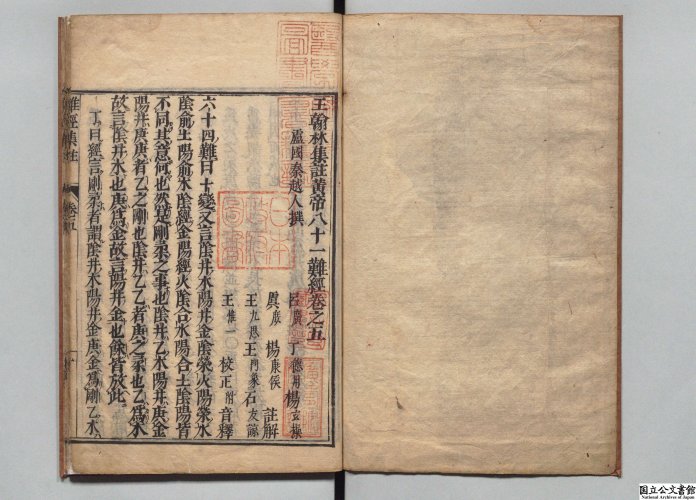 王翰林集註黃帝八十一難經卷之五
盧國秦越人撰
呂廣 丁德用 楊玄操
虞庶 楊康侯 註解
王九思 王鼎象 石友諒
王惟一 校正附音釋
六十四難曰十變又言陰井木陽井金陰滎火陽滎水
陰俞土陽俞木陰經金陽經火陰合水陽合土陰陽皆
不同其意何也然是剛柔之事也陰井乙木陽井庚金
陽井庚庚者乙之剛也陰井乙乙者庚之柔也乙爲木
故言陰井木也庚爲金故言陽井金也餘皆放此
丁曰經言剛柔者謂陰井木陽井金庚金爲剛乙木
難經集註
卷五
日本
政府
圖書
国立公文書館
National Archives of Japan